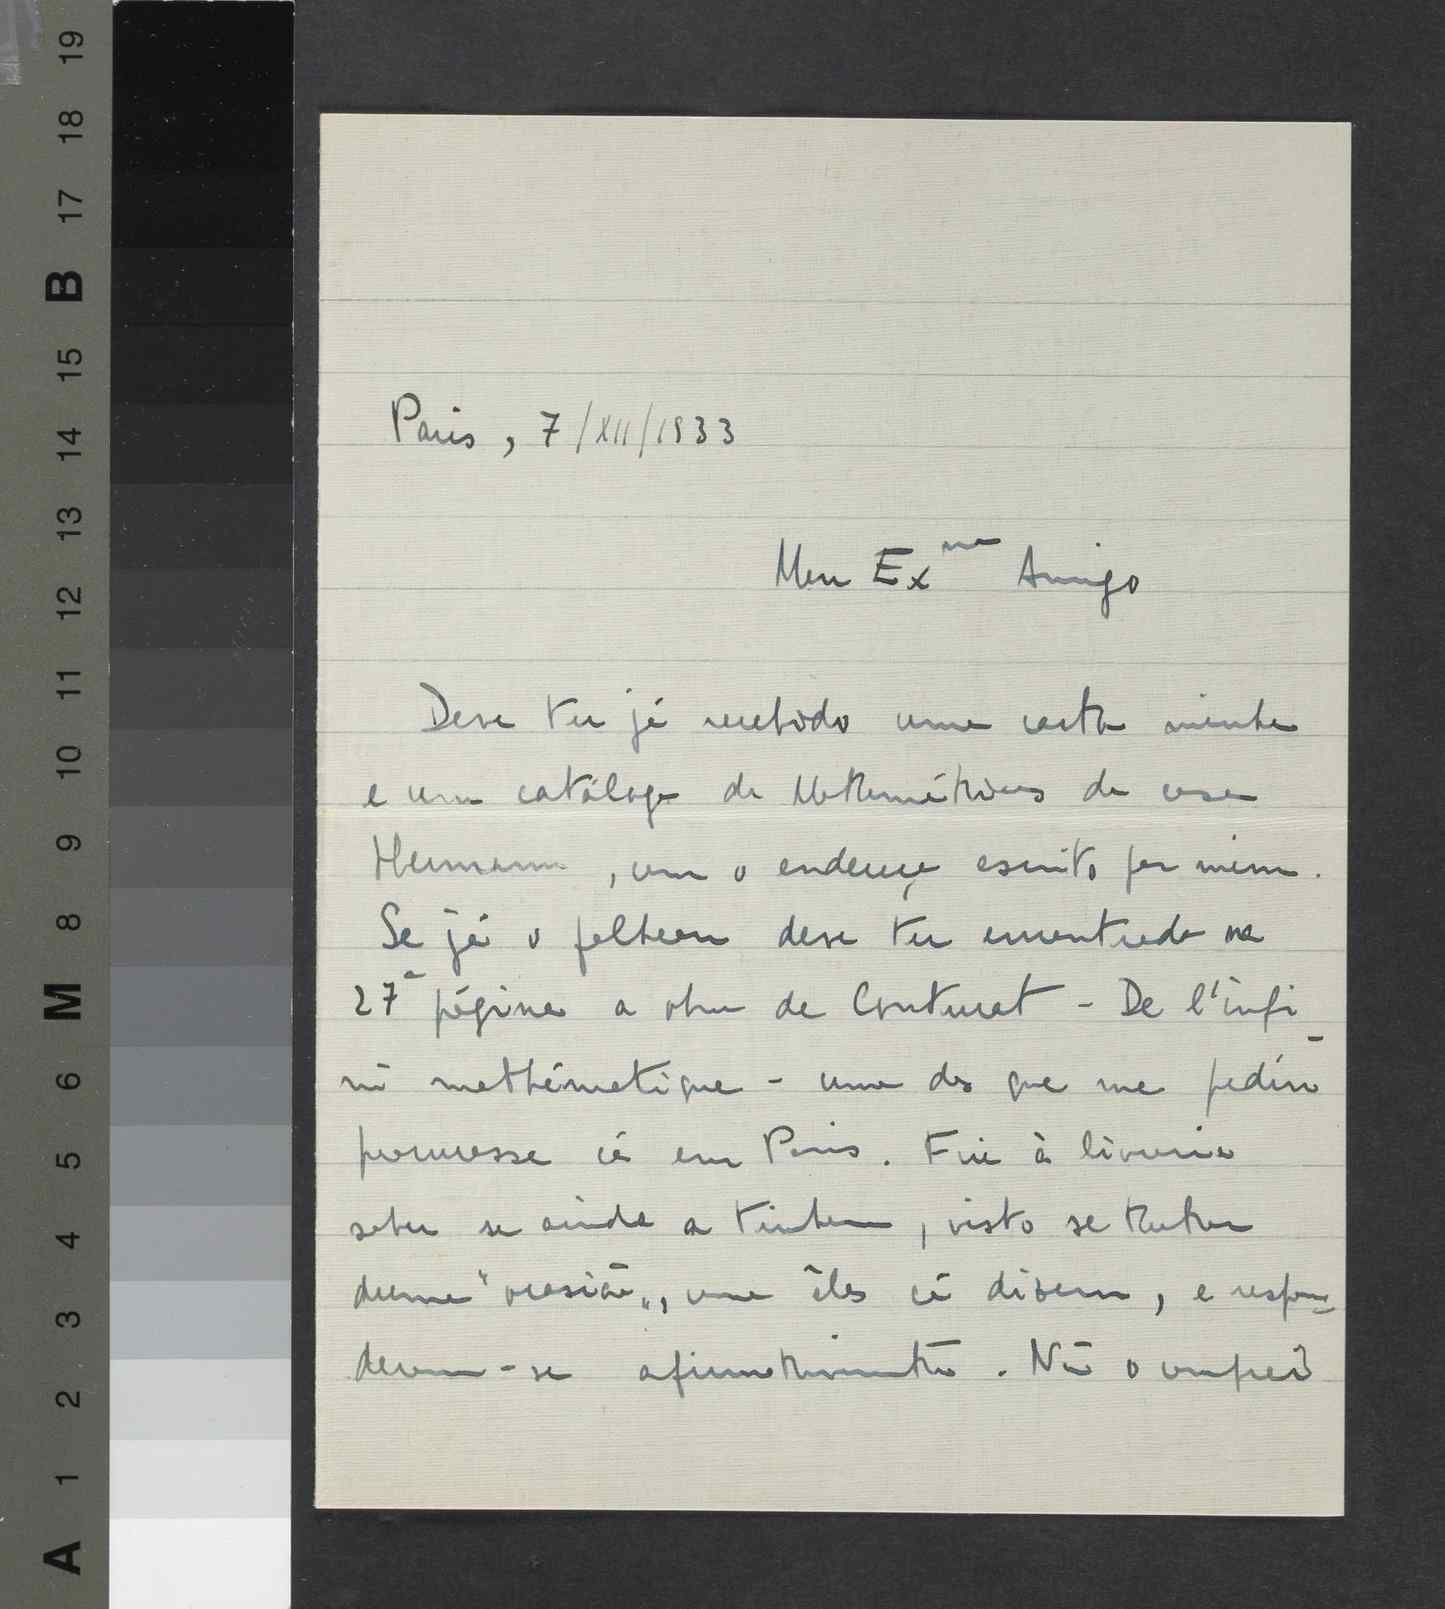 19
18
17
B
15
14
13
12
11
10
9
8
M
6
5
4
3
2
1
A
Paris, 7/XII/1933
Meu Exmo Amigo
Deve ter já recebido uma carta minha
e um catálogo de Matemáticas da casa
Hermann, com o endereço escrito por mim.
Se já o folheou deve ter encontrado na
27ª página a obra de Couturat - De l'infi
ni mathématique - uma das que me pediu
procurasse cá em Paris. Fui à livraria
saber se ainda a tinham, visto se tratar
duma "ocasião", como êles cá dizem, e respon
deram-se afirmativamente. Não o comprei